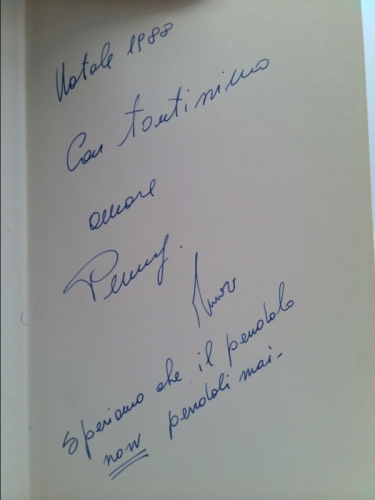 Natale 1988
Con tantissimo
amore
Penny.
Speriamo che il pendolo
non pendoli mai-